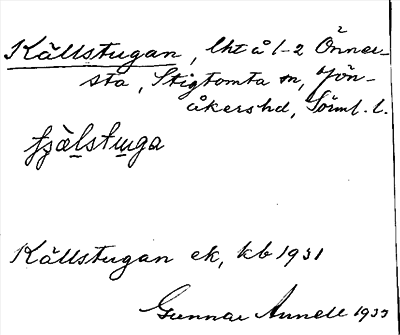 Källstugan, lht å 1-2 Önner-
sta, Stigtomta sn, Jön-
åkershd, Sörml. l.
Källstugan ek, kb 1931
Gunnar Annell 1933